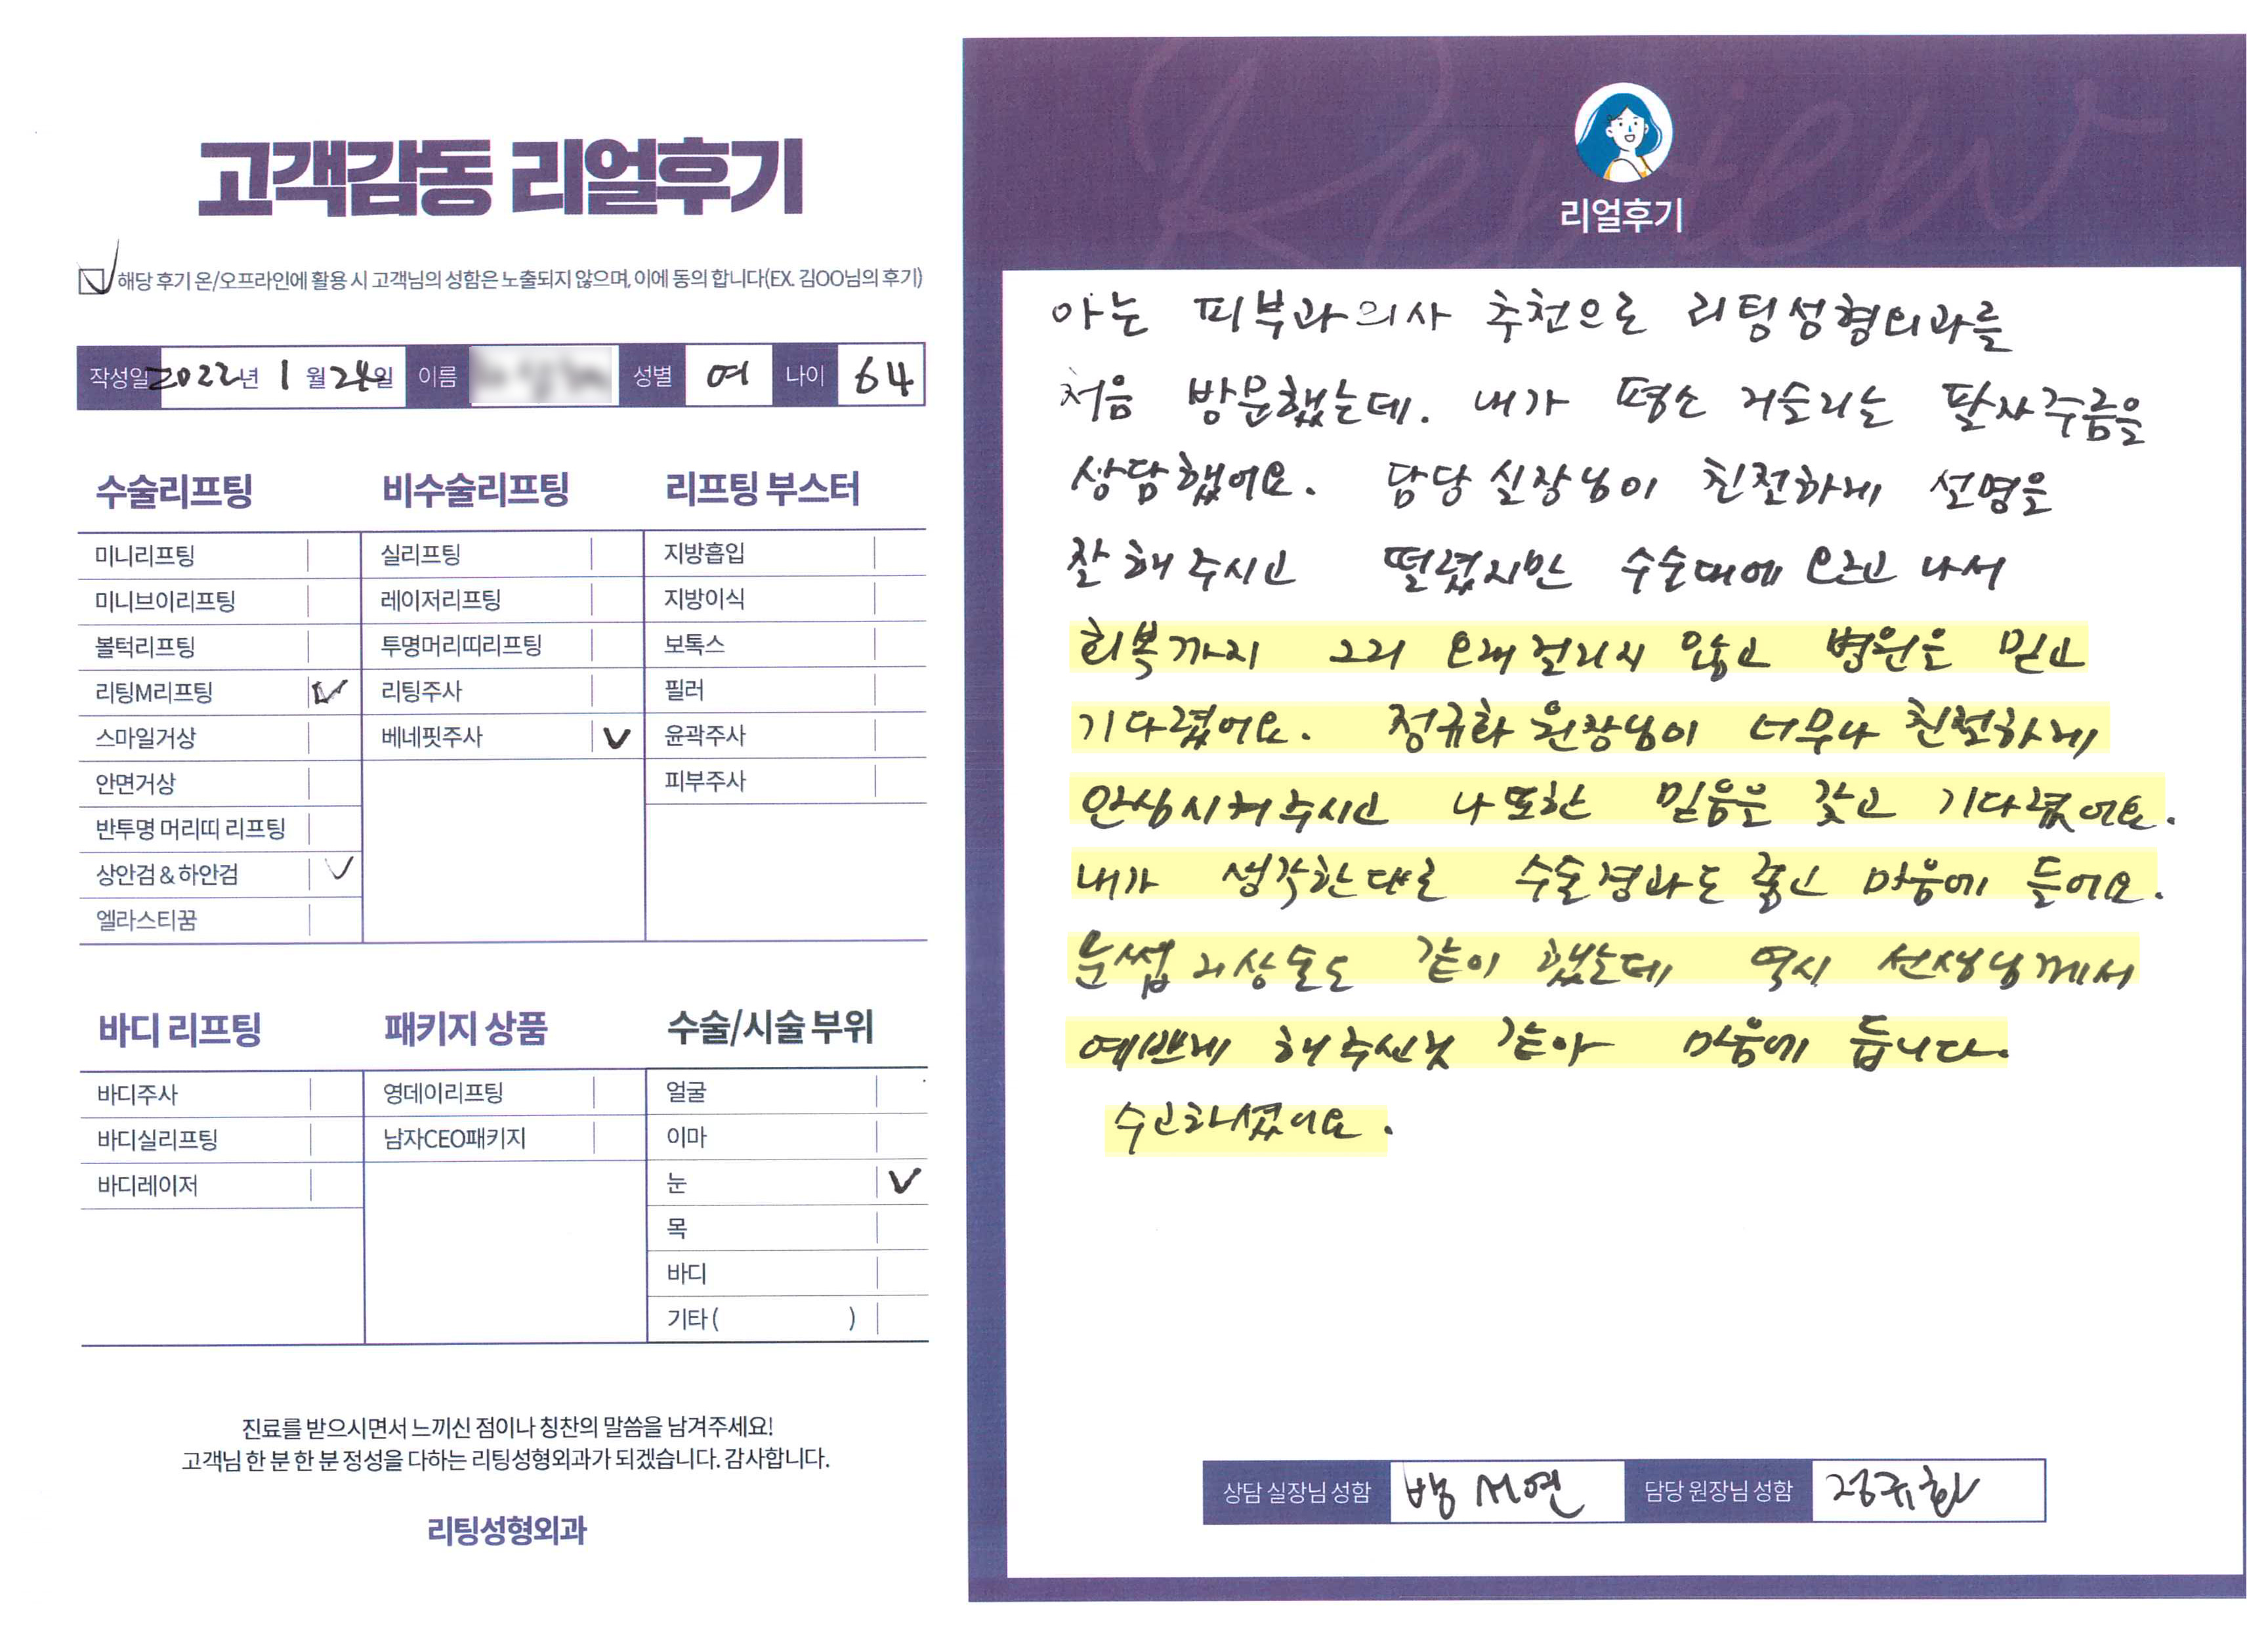 고객감동 리얼후기
해당 후기 온/오프라인에 활용 시 고객님의 성함은 노출되지 않으며, 이에 동의 합니다(EX. 김OO님의 후기)
작성일 2022년 1월 24일 이름 성별 여 나이 64
수술리프팅
미니리프팅
미니브이리프팅
볼턱리프팅
리팅M리프팅
스마일거상
안면거상
반투명 머리띠 리프팅
상안검 & 하안검
엘라스티꿈
비수술리프팅
실리프팅
레이저리프팅
투명머리띠리프팅
리팅주사
베네핏주사
리프팅 부스터
지방흡입
지방이식
보톡스
필러
윤곽주사
피부주사
바디 리프팅
바디주사
바디실리프팅
바디레이저
패키지 상품
영데이리프팅
남자CEO패키지
수술/시술 부위
얼굴
이마
눈
목
바디
기타 ( )
진료를 받으시면서 느끼신 점이나 칭찬의 말씀을 남겨주세요!
고객님 한 분 한 분 정성을 다하는 리팅성형외과가 되겠습니다. 감사합니다.
리팅성형외과
Review
리얼후기
아는 피부과의사 추천으로 리팅성형외과를
처음 방문했는데. 내가 평소 거슬리는 팔자주름을
상담했어요. 담당 실장님이 친절하게 설명을
잘 해 주시고 떨렸지만 수술대에 오르고 나서
회복까지 그리 오래 걸리지 않고 병원은 믿고
기다렸어요. 정규화 원장님이 너무나 친절하게
안심시켜주시고 나 또한 믿음을 갖고 기다렸어요.
내가 생각한대로 수술경과도 좋고 마음에 들어요.
눈썹거상술도 같이 했는데 역시 선생님께서
예쁘게 해주신것 같아 마음에 듭니다.
수고하셨어요.
상담 실장님 성함 서연 담당 원장님 성함 정규화